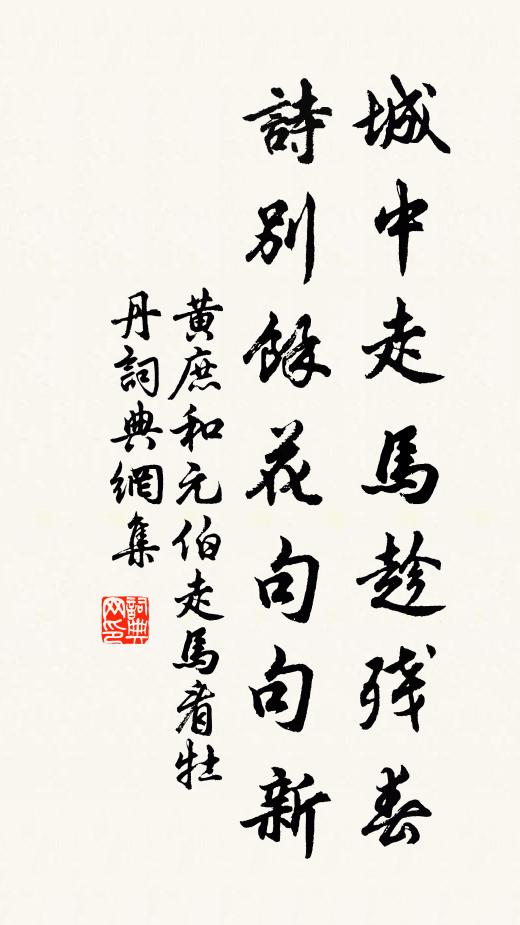 城中走馬趁残春
詩別餘花句句新
黃庶和元伯走馬看牡
丹詞典網集
詞典
网印